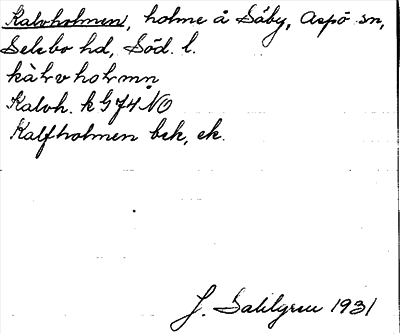 Kalvholmen, holme å Säby, Aspö sn,
Selebo hd, Söd. l.
kàlvholmn
Kalvh. k G 74 NO
Kalfholmen bek, ek.
J. Sahlgren 1931